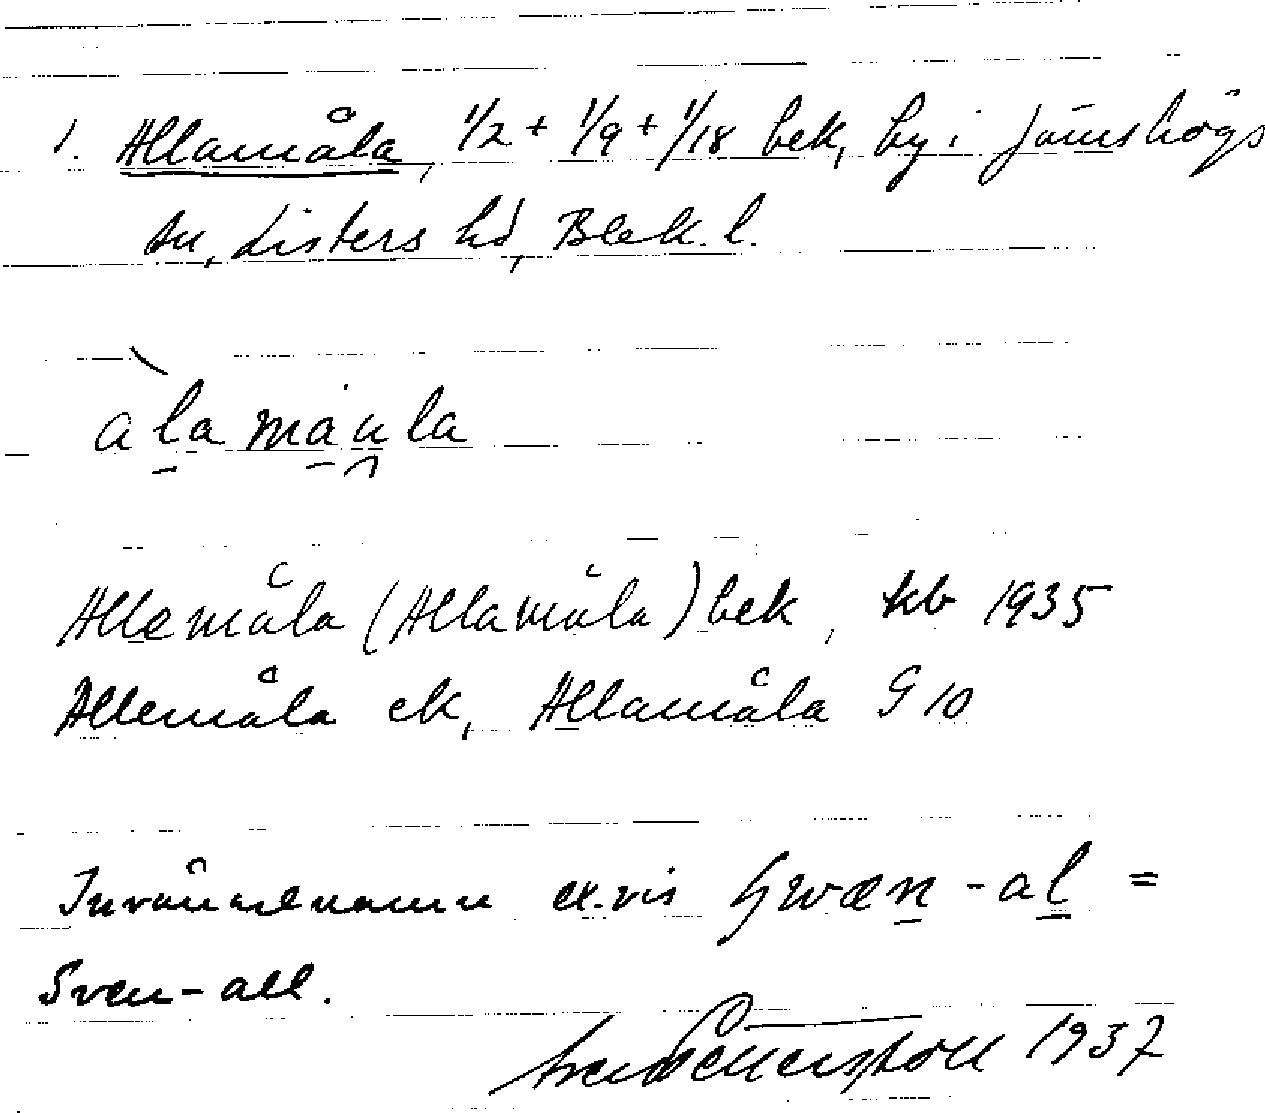 1. Allamåla, 1/2 + 1/9 + 1/18 bek, by i Jämshögs
sn, Listers hd, Blek. l.
àla måu̯la
Allemåla (Allamåla) bek, kb 1935
Allemåla ek, Allamåla G 10
Invånarenamn ex.vis swæn - al =
Sven-all.
1937